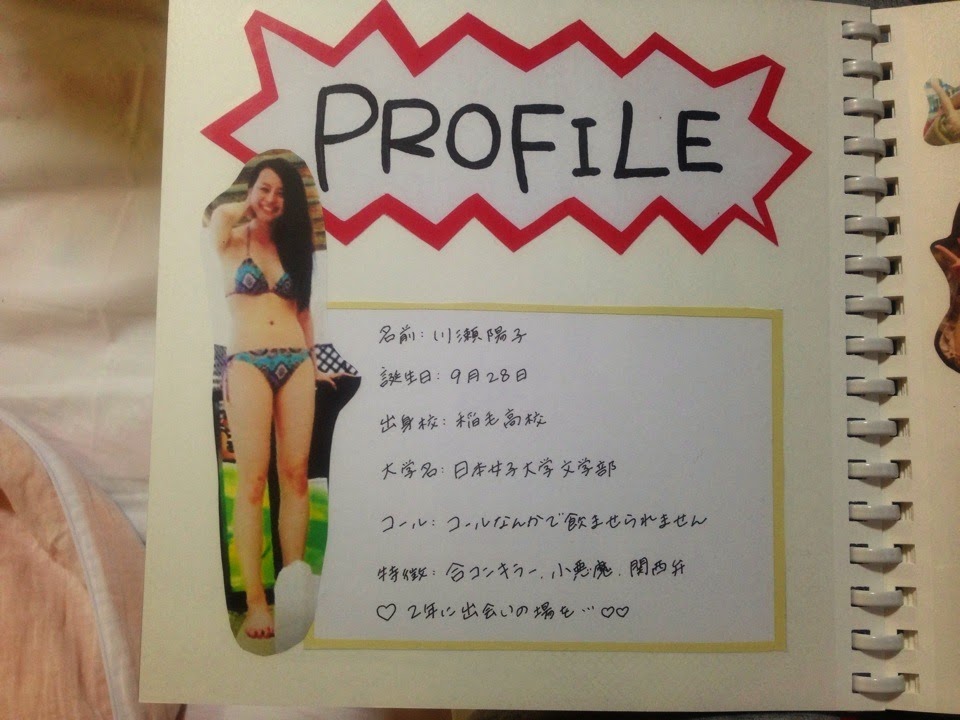 PROFILE
名前：川瀬陽子
誕生日：9月28日
出身校：稲毛高校
大学名：日本女子大学文学部
コール：コールなんかで飲ませられません
特徴：合コンキラー、小悪魔、関西弁
♡2年に出会いの場を…♡♡